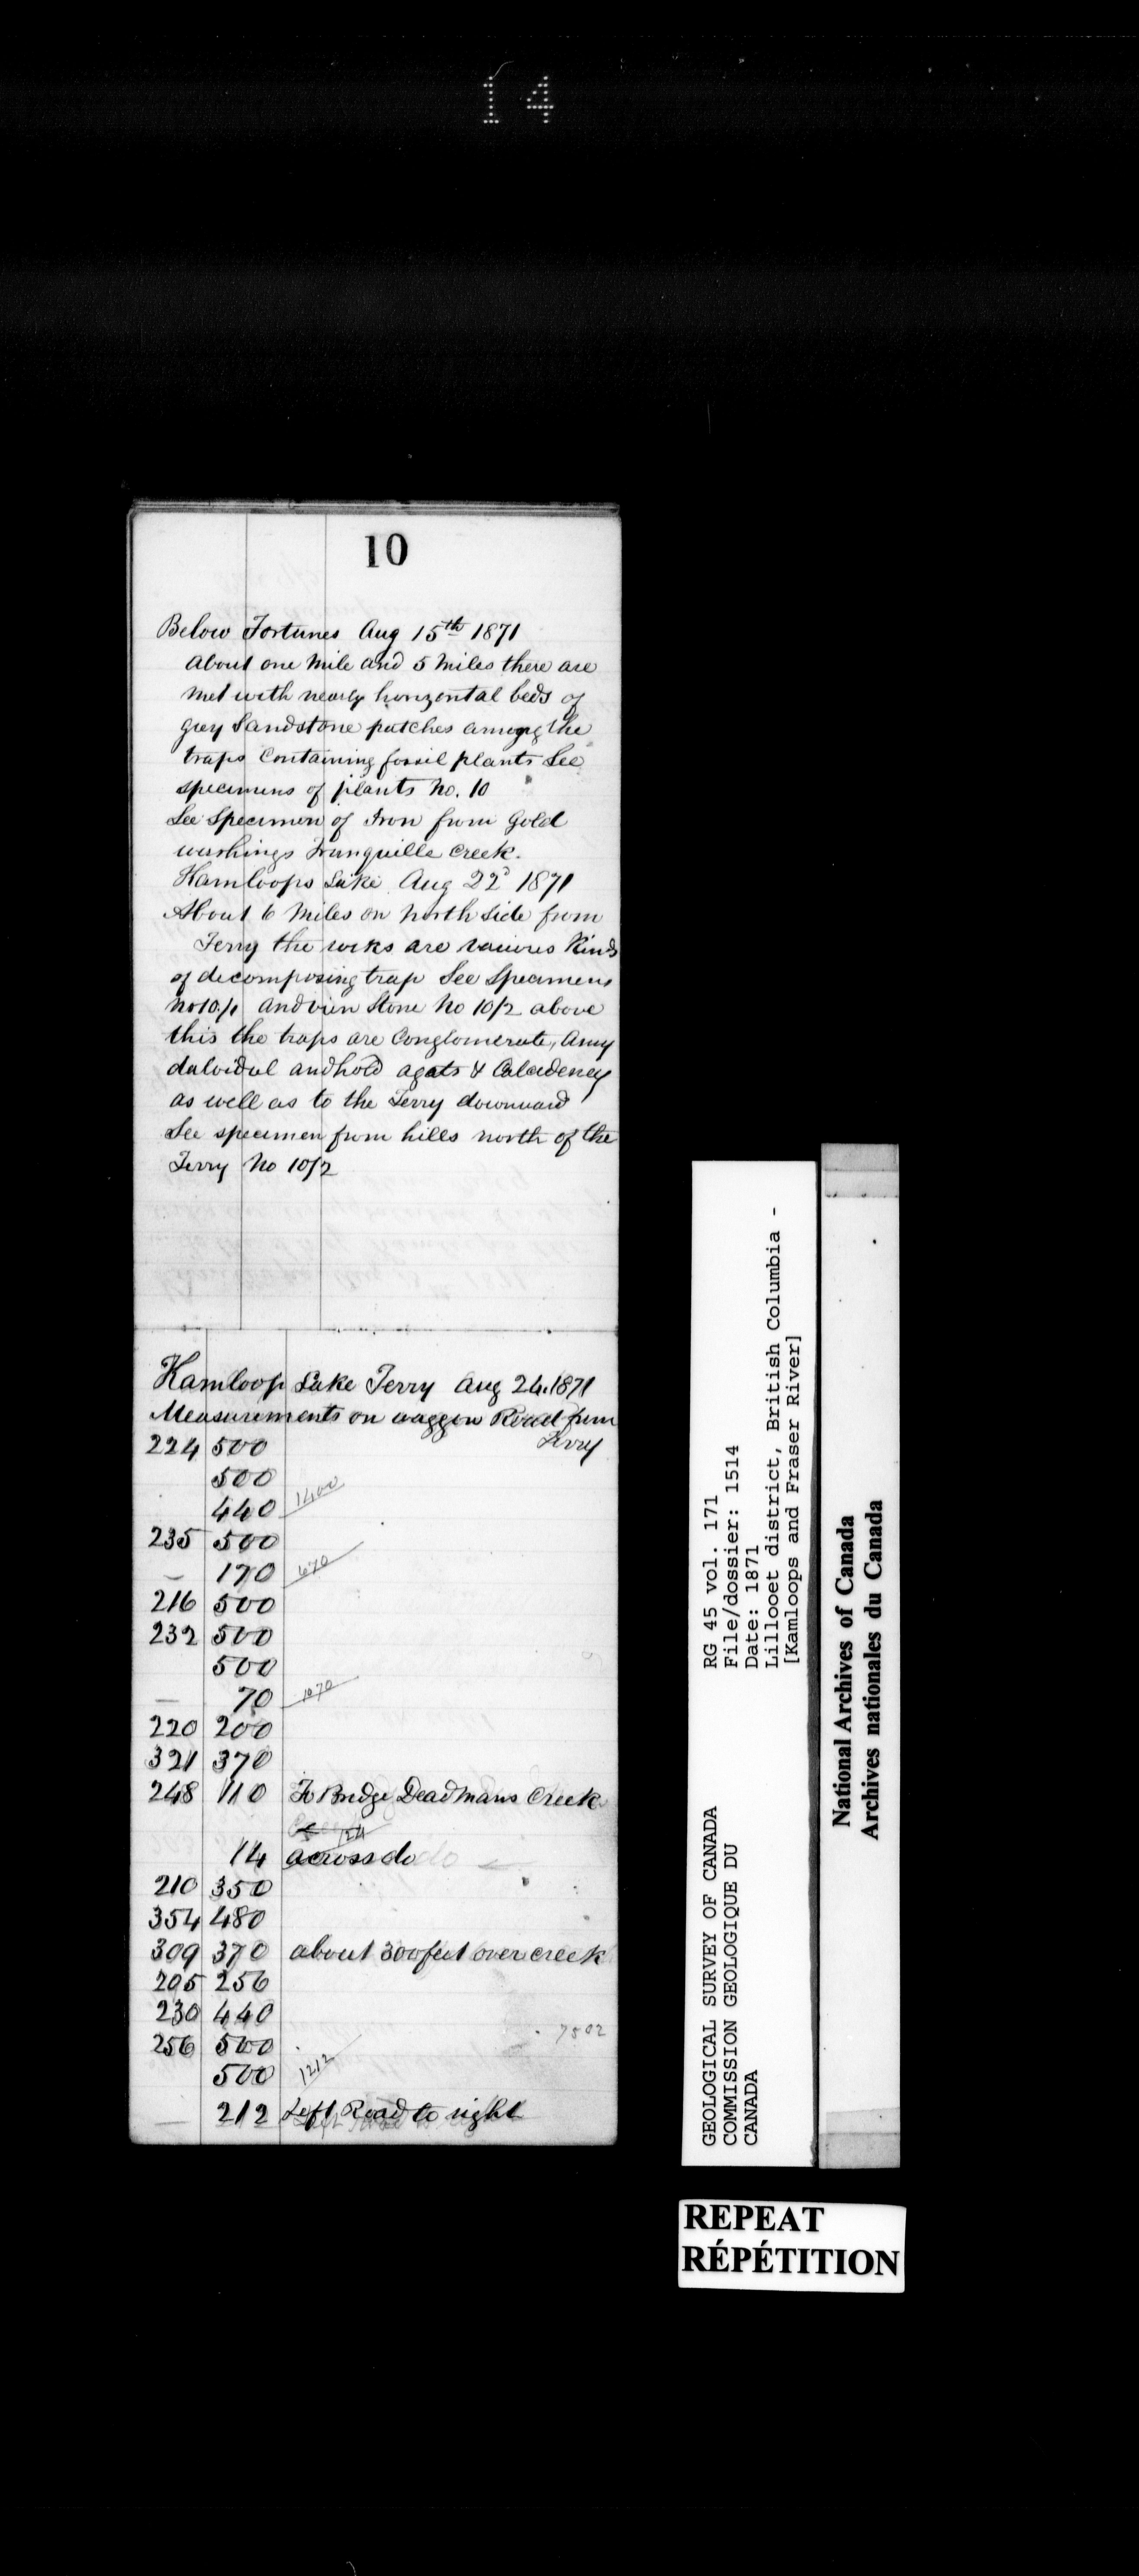 14
10
Below Fortunes Aug 15th 1871
About one mile and 5 miles there are
met with nearly horizontal beds of
grey Sandstone patches among the
traps Containing fossil plants See
specimens of plants No. 10
See Specimen of Iron from Gold
washings Tranquille Creek.
Kamloops Lake Aug 22d 1871
About 6 Miles on North Side from
Ferry the rocks are various Kinds
of decomposing trap See Specimens
No 10/1 and vein Stone No 10/2 above
this the traps are Conglomerate, Amy
daloidal and hold agats & Calcedeney
as well as to the Ferry downward
See specimen from hills north of the
Ferry No 10/2
Kamloop Lake Ferry Aug 24. 1871
Measurements on waggon Road from
Ferry
224 500
500
440 1400
235 500
– 170 670
216 500
232 500
500
– 70 1070
220 200
321 370
248 110 To Bridge Deadmans Creek
124
14 across do
210 350
354 480
309 370 about 300 feet over creek
205 256
230 440
7502
256 500
500 1212
– 212 Left Road to right
RG 45 vol. 171
File/dossier: 1514
Date: 1871
Lillooet district, British Columbia -
[Kamloops and Fraser River]
GEOLOGICAL SURVEY OF CANADA
COMMISSION GEOLOGIQUE DU
CANADA
National Archives of Canada
Archives nationales du Canada
REPEAT
RÉPÉTITION